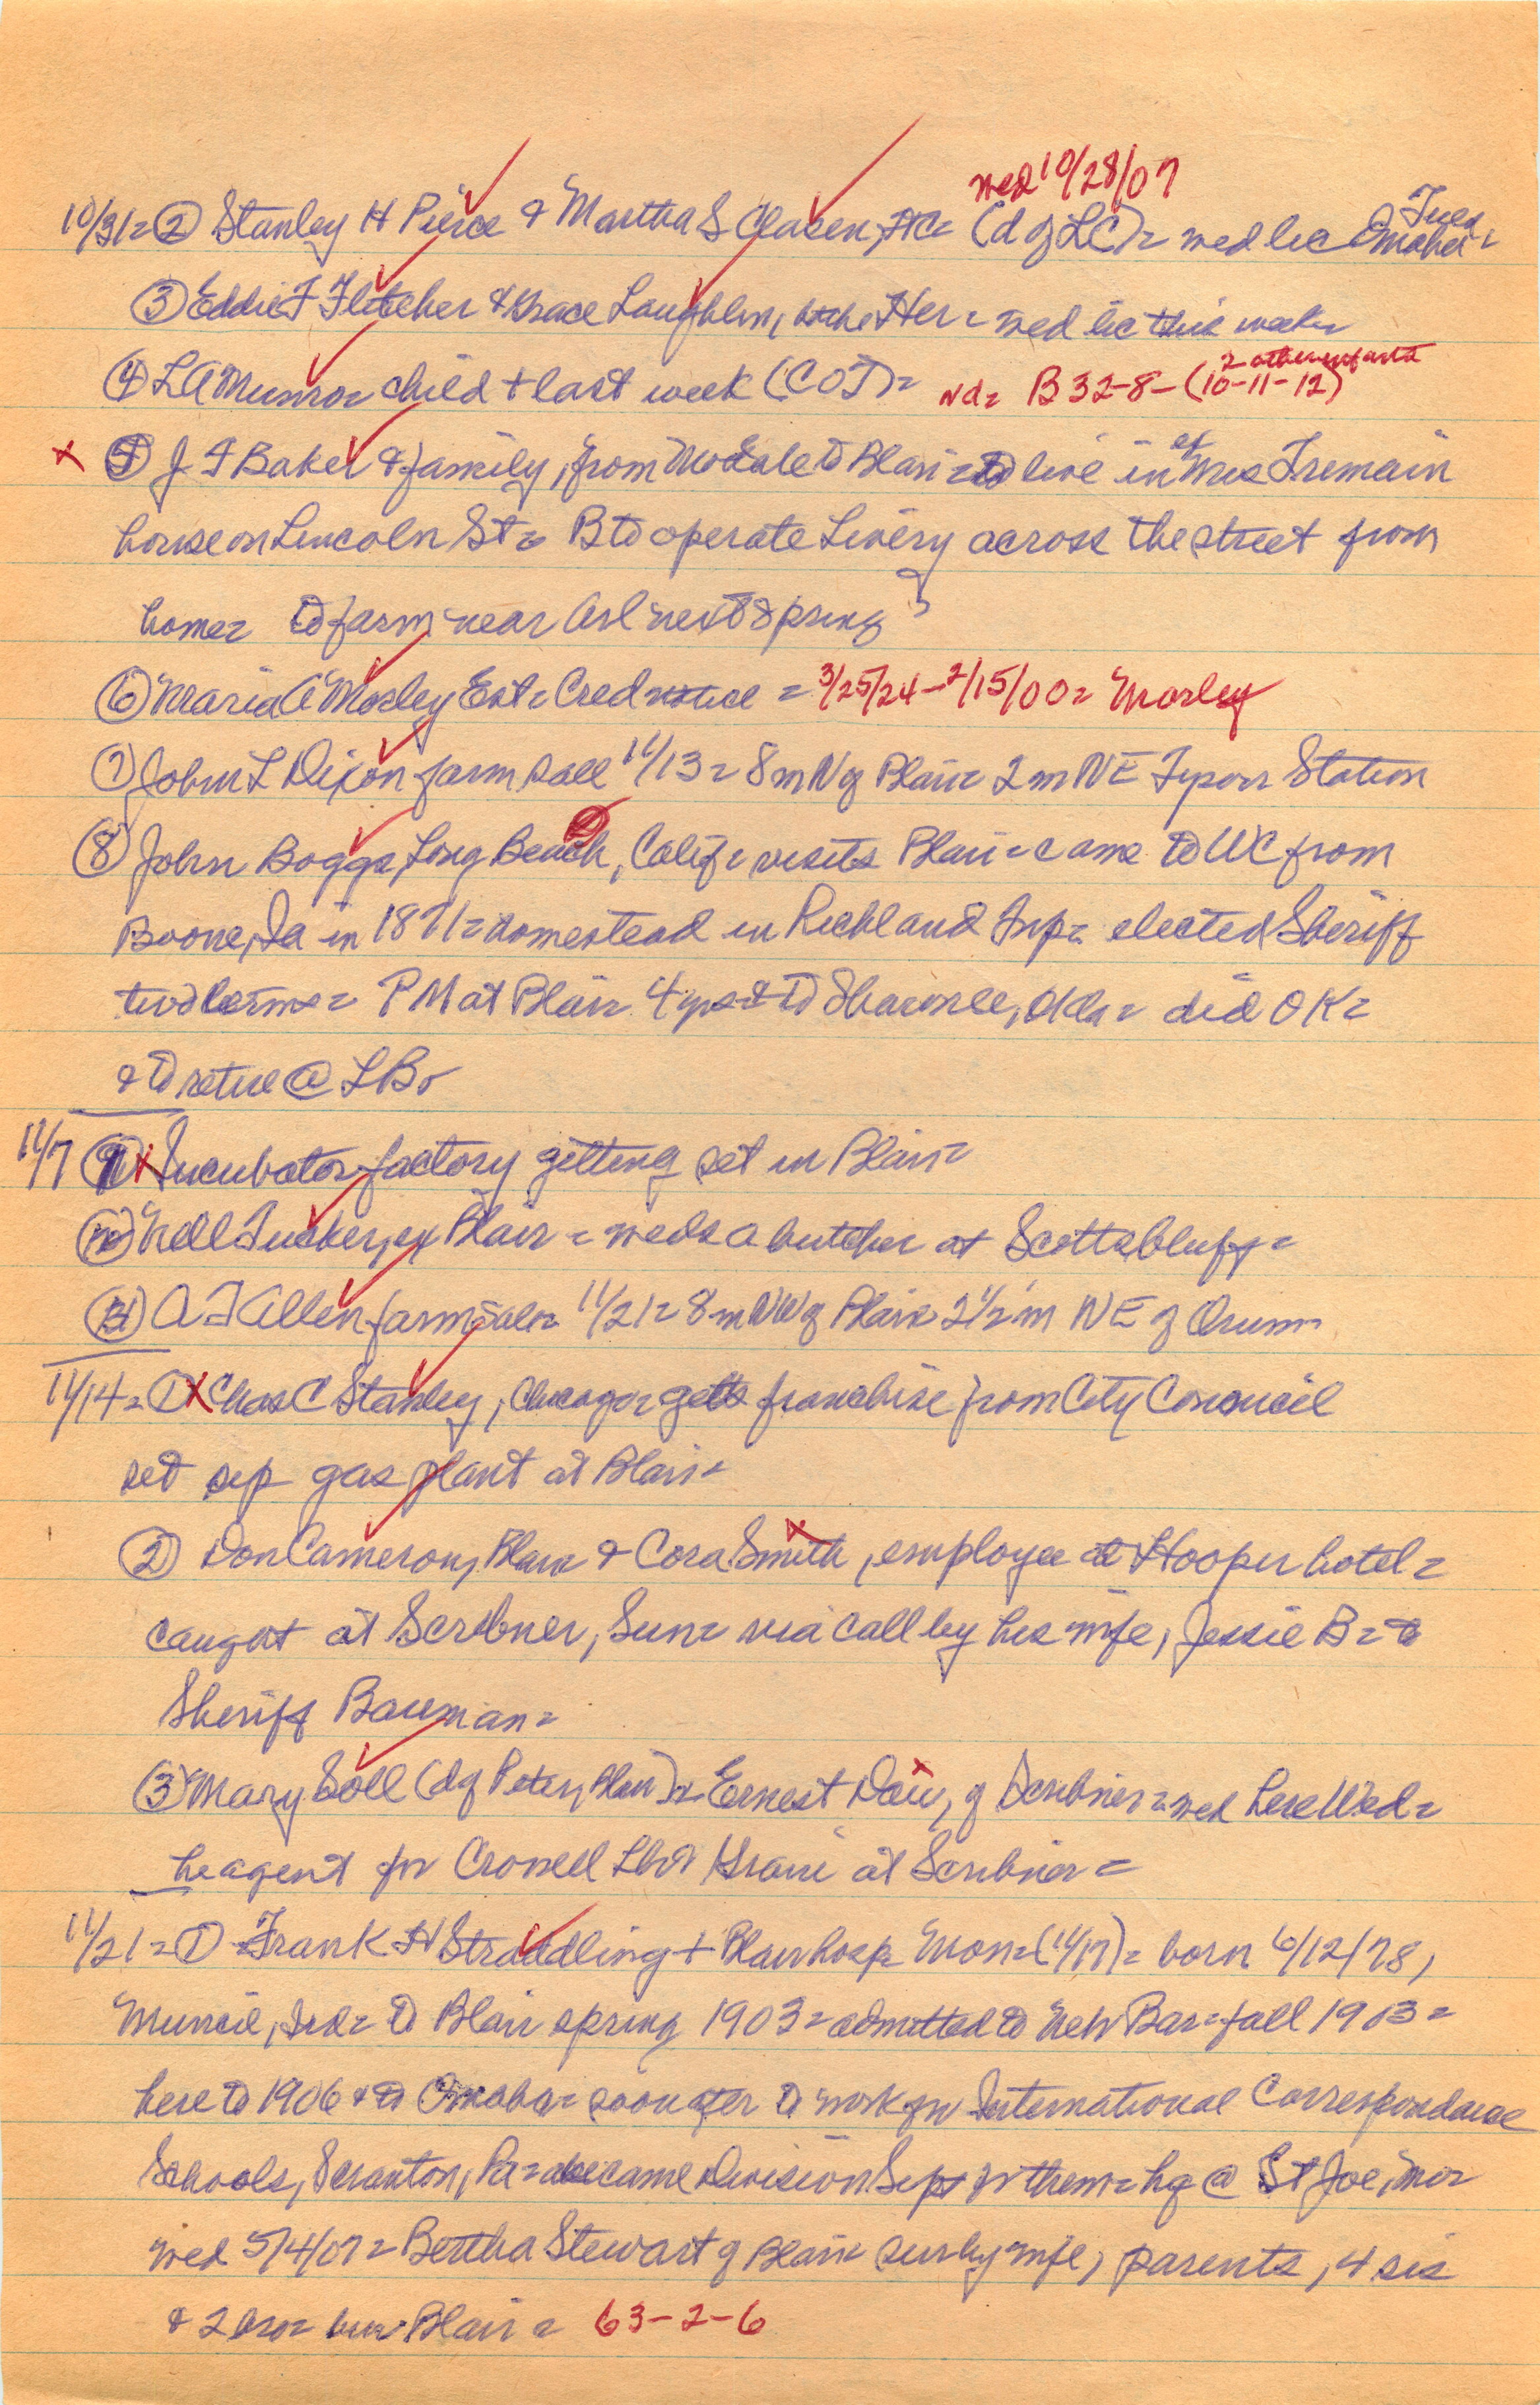 wed 10/28/07
10/31= ② Stanley H Pierce & Martha S Clasen, = (d of LC)= wed lic Omaha Tues=
③ Eddie F Fletcher & Grace Laughlin, both Her= wed lic this week=
④ L A Munro= child + last week (COJ)= nd= B 32-8-(10-11-12) 2 other infants
x ⑤ J F Baker & family, from Modale to Blair= to live in of Mrs Tremain
house on Lincoln St= B to operate Livery across the street from
home= to farm near Arl next spring
⑥ Maria A Mosley Est= Cred notice = 3/25/24-2/15/00= Mosley
⑦ John L Dixon farm sale 11/13= 8 m N of Blair= 2 m NE Tyson Station
⑧ John Boggs, Long Beach, Calif= visits Blair= came to WC from
Boone, Ia in 1871= homestead in Richland Twp= elected Sheriff
two terms= PM at Blair 4 yrs & to Shawnee, Okla= did OK=
& to retire @ LB=
11/7 9 x Incubator factory getting set in Blair=
10 Nell Tucker, ex Blair = weds a butcher at Scottsbluff=
11 A J Allen farm sale= 11/21= 8 m NW of Blair= 2 1/2 m NE of Orum=
11/14= ① x Chas C Stanley, Chicago= gets franchise from City Council
set up gas plant at Blair=
② Don Cameron, Blair & Cora Smith, employee at Hooper hotel=
caught at Scribner, Sun= via call by his wife, Jessie B= to
Sheriff Bauman=
③ Mary Soll (d of Peter, Blair)= & Ernest Dau, of Scribner= wed here Wed=
he agent for Crowell Lbr & Grain at Scribner=
11/21= ① Frank H Straddling + Blair hosp= Mon= (11/17)= born 6/12/78,
Muncie, Ind= to Blair spring 1903= admitted to Neb Bar= fall 1903=
here to 1906 & to Omaha= soon after to work for International Correspondence
Schools, Scranton, Pa= became Division Supt for them= hq @ St Joe, Mo=
wed 5/4/07= Bertha Stewart of Blair= sur by wife, parents, 4 sis
& 2 bro= bur Blair= 63-2-6